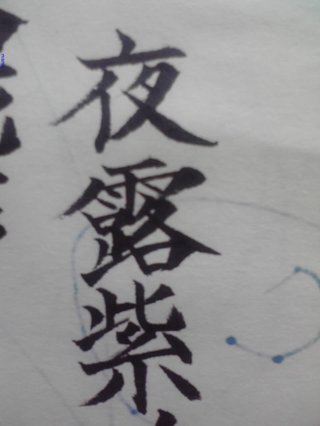 夜露紫